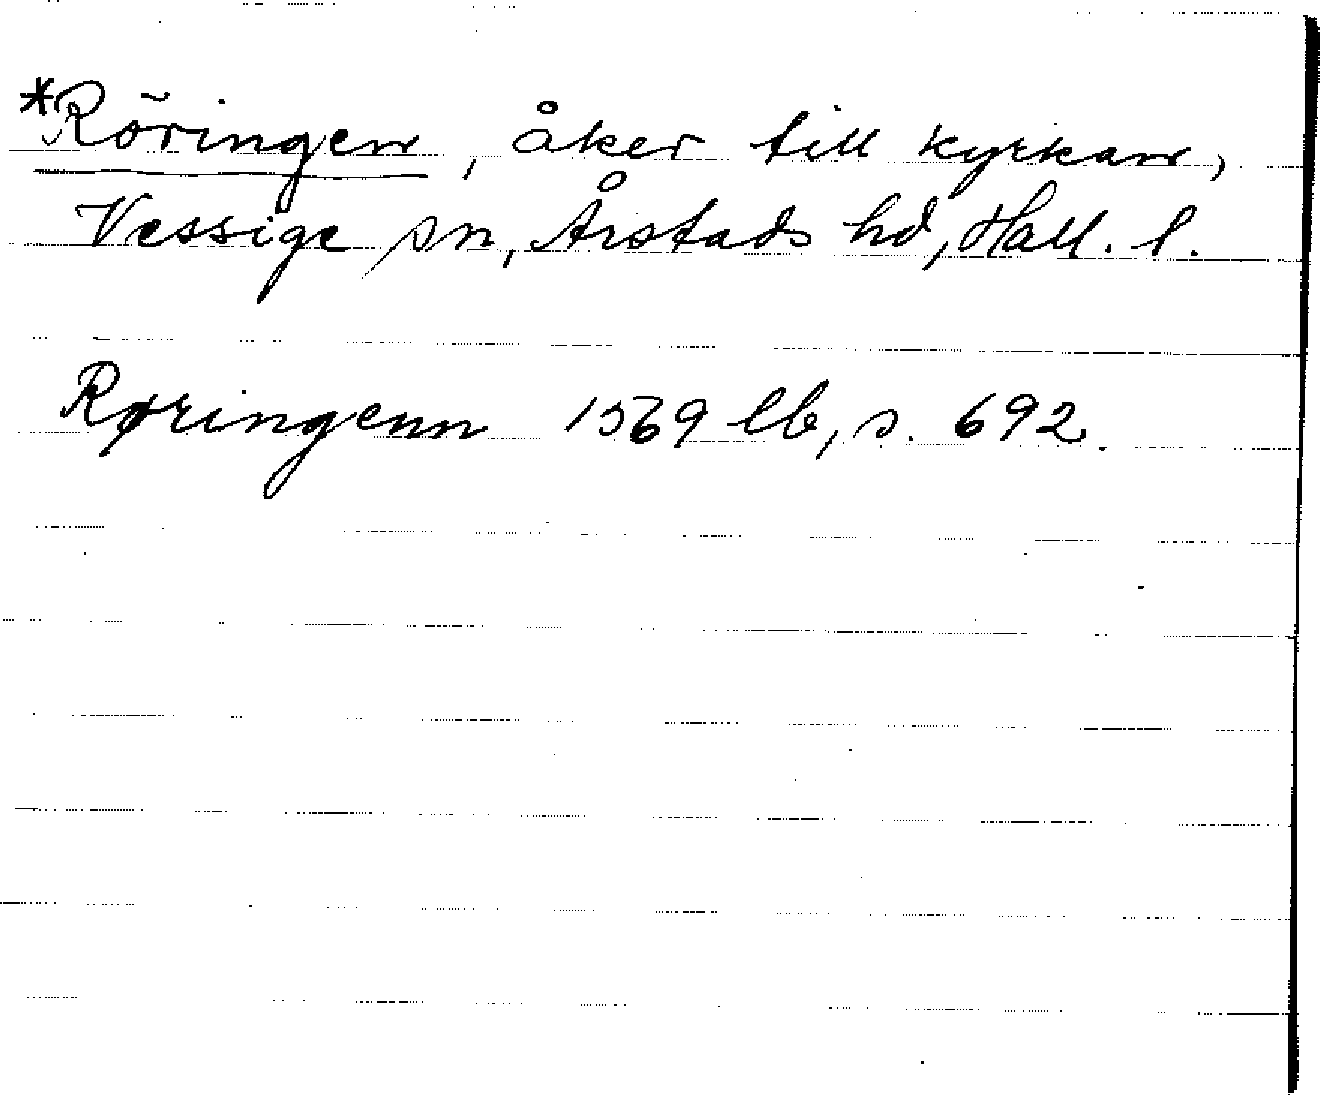 *Röringen, åker till kyrkan,
Vessige sn, Årstads hd, Hall. l.
Røringenn 1569 lb, s. 692.